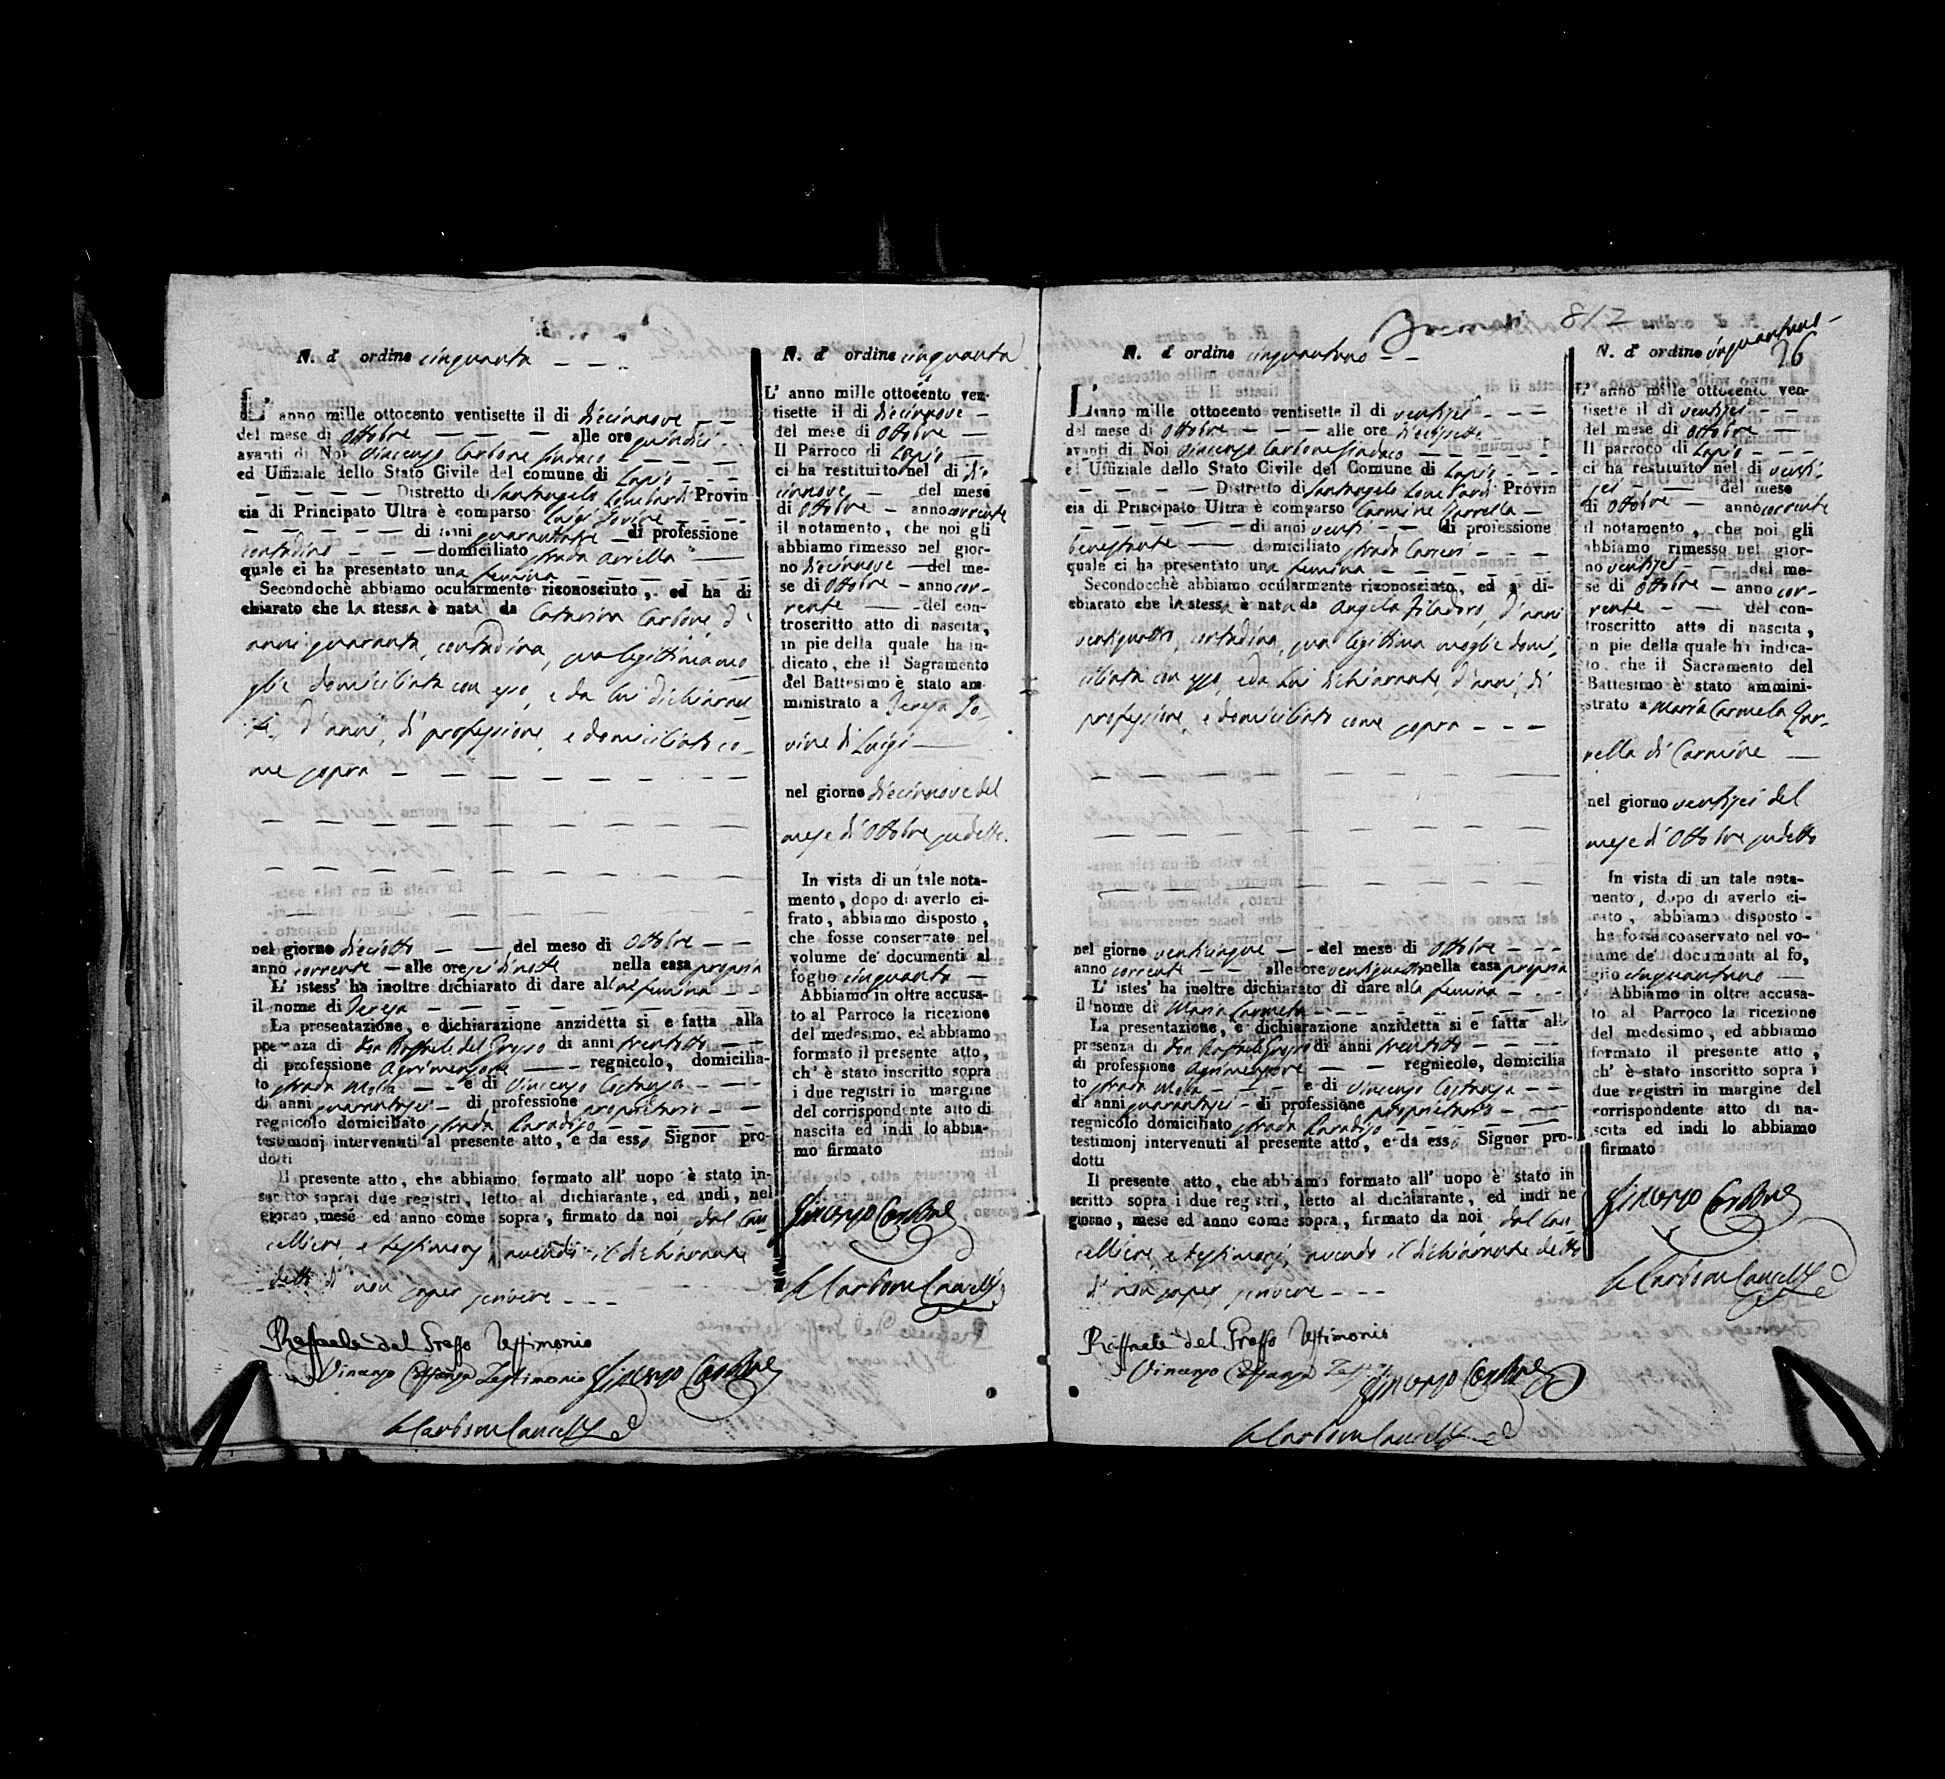 N. d' ordine cinquanta
L' anno mille ottocento ventisette il di diecinnove
del mese di Ottobre alle ore quindici
avanti di Noi Vincenzo Carbone Sindaco
ed Uffiziale dello Stato Civile del comune di Lapio
Distretto di Santangelo Lombardi Provin
cia di Principato Ultra è comparso Luigi Iovine
di anni quarantatre di professione
contadino domiciliato strada
quale ci ha presentato una femina
Secondochè abbiamo ocularmente riconosciuto, ed ha di
chiarato che la stessa è nata da Catarina Carbone d'
anni quaranta, contadina, sua legittima mo
glie domiciliata con esso, e da lui dichiaran
te, d'anni, di professione, e domiciliato co
me sopra
nel giorno dieciotto del mese di Ottobre
anno corrente alle ore sei di notte nella casa propria
L' istess' ha inoltre dichiarato di dare alla femina
il nome di Teresa
La presentazione, e dichiarazione anzidetta si e fatta alla
presenza di Don Raffaele del Grosso di anni trentotto
di professione Agrimensore regnicolo, domicilia-
to strada Mola e di Vincenzo Costanza
di anni quarantasei di professione proprietario
regnicolo domiciliato strada Paradiso
testimonj intervenuti al presente atto, e da esso Signor pro-
dotti
Il presente atto, che abbiamo formato all' uopo è stato in-
scritto soprai due registri, letto al dichiarante, ed indi, nel
giorno, mese ed anno come sopra, firmato da noi dal Can
celliere, e testimonj, avendo il dichiarante
detto di non saper scrivere
Raffaele del Grosso Testimonio
Vincenzo Costanza Testimonio Vincenzo Carbone
Carbone Cancell.
N. d' ordine cinquanta
L' anno mille ottocento ven-
tisette il di diecinnove
del mese di Ottobre
Il Parroco di Lapio
ci ha restituito nel di die
cinnove del mese
di Ottobre anno corrente
il notamento, che noi gli
abbiamo rimesso nel gior-
no diecinnove del me-
se di Ottobre anno cor-
rente del con-
troscritto atto di nascita,
in pie della quale ha in-
dicato, che il Sagramento
del Battesimo è stato am
ministrato a Teresa Io-
vine di Luigi
nel giorno diecinnove del
mese di Ottobre sudetto
In vista di un tale nota-
mento, dopo di averlo ci-
frato, abbiamo disposto,
che fosse conservato nel
volume de' documenti al
foglio cinquanta
Abbiamo in oltre accusa-
to al Parroco la ricezione
del medesimo, ed abbiamo
formato il presente atto,
ch' è stato inscritto sopra
i due registri in margine
del corrispondente atto di
nascita ed indi lo abbia-
mo firmato
Vincenzo Carbone
Carbone Cancell.
812
26
N. d' ordine cinquantuno
L' anno mille ottocento ventisette il di ventisei
del mese di Ottobre alle ore diecisette
avanti di Noi Vincenzo Carbone Sindaco
ed Uffiziale dello Stato Civile del Comune di Lapio
Distretto di Santangelo Lombardi Provin
cia di Principato Ultra è comparso Carmine
di anni venti di professione
benestante domiciliato strada Carreri
quale ci ha presentato una femina
Secondocchè abbiamo occularmente riconosciuto, ed a di-
chiarato che la stessa è nata da Angela Filadoro, d'anni
ventiquattro, contadina, sua legittima moglie domi-
ciliata con esso, e da lui dichiarante, d'anni, di
professione, e domiciliato come sopra
nel giorno venticinque del mese di Ottobre
anno corrente alle ore ventiquattro nella casa propria
L' istes' ha inoltre dichiarato di dare alla femina
il nome di Maria Carmela
La presentazione, e dichiarazione anzidetta si e fatta alla
presenza di Don Raffaele Grosso di anni trentotto
di professione Agrimensore regnicolo, domicilia
to strada Mola e di Vincenzo Costanza
di anni quarantasei di professione proprietario
regnicolo domiciliato strada Paradiso
testimonj intervenuti al presente atto, e da esso Signor pro-
dotti
Il presente atto, che abbiamo formato all' uopo è stato in
scritto sopra i due registri, letto al dichiarante, ed indi ne
giorno, mese ed anno come sopra, firmato da noi dal Can
celliere, e testimonj, avendo il dichiarante detto
di non saper scrivere
Raffaele del Grosso Testimonio
Vincenzo Costanza Vincenzo Carbone
Carbone Cancell.
N. d' ordine cinquantuno
L' anno mille ottocento ven-
tisette il di ventisei
del mese di Ottobre
Il parroco di Lapio
ci ha restituito nel di venti-
sei del mese
di Ottobre anno corrente
il notamento, che noi gli
abbiamo rimesso nel gior-
no ventisei del me-
se di Ottobre anno cor-
rente del con-
troscritto atto di nascita,
in pie della quale ha indica-
to, che il Sacramento del
Battesimo è stato ammini-
strato a Maria Carmela
di Carmine
nel giorno ventisei del
mese di Ottobre sudetto
In vista di un tale nota-
mento, dopo di averlo ci-
frato, abbiamo disposto
he fosse conservato nel vo-
lume de' documenti al fo,
glio cinquantuno
Abbiamo in oltre accusa-
to al Parroco la ricezione
del medesimo, ed abbiamo
formato il presente atto,
ch' è stato inscritto sopra i
due registri in margine del
corrispondente atto di na-
scita ed indi lo abbiamo
firmato
Vincenzo Carbone
Carbone Cancell.